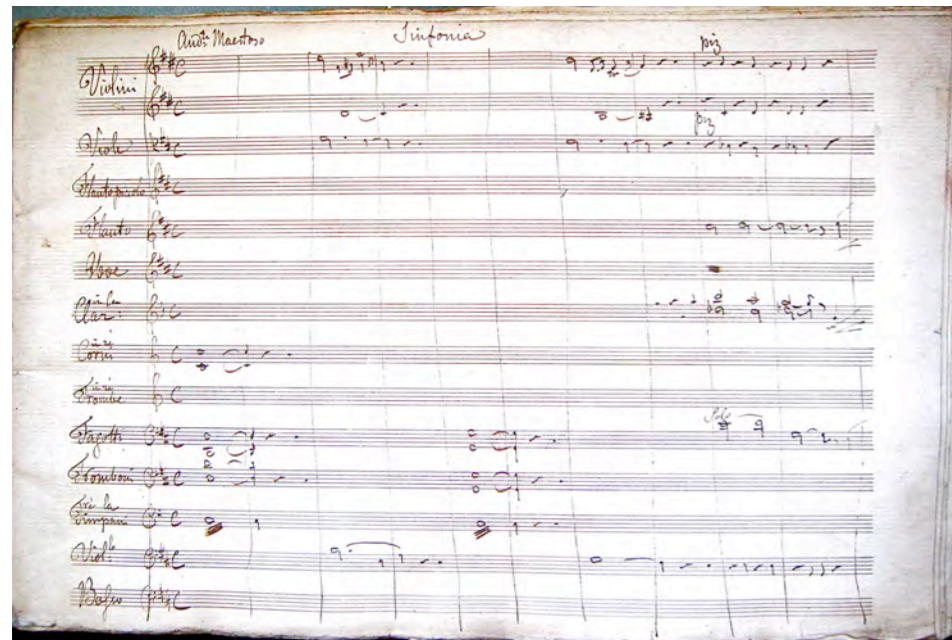 And.te Maestoso Sinfonia
piz
Violini
piz
Viole
Flauto piccolo
Flauto
Oboe
in la
Clar:
in re
Corni
in re
Trombe
Solo
Fagotti
Tromboni
Timpani
Viol.lli
Basso